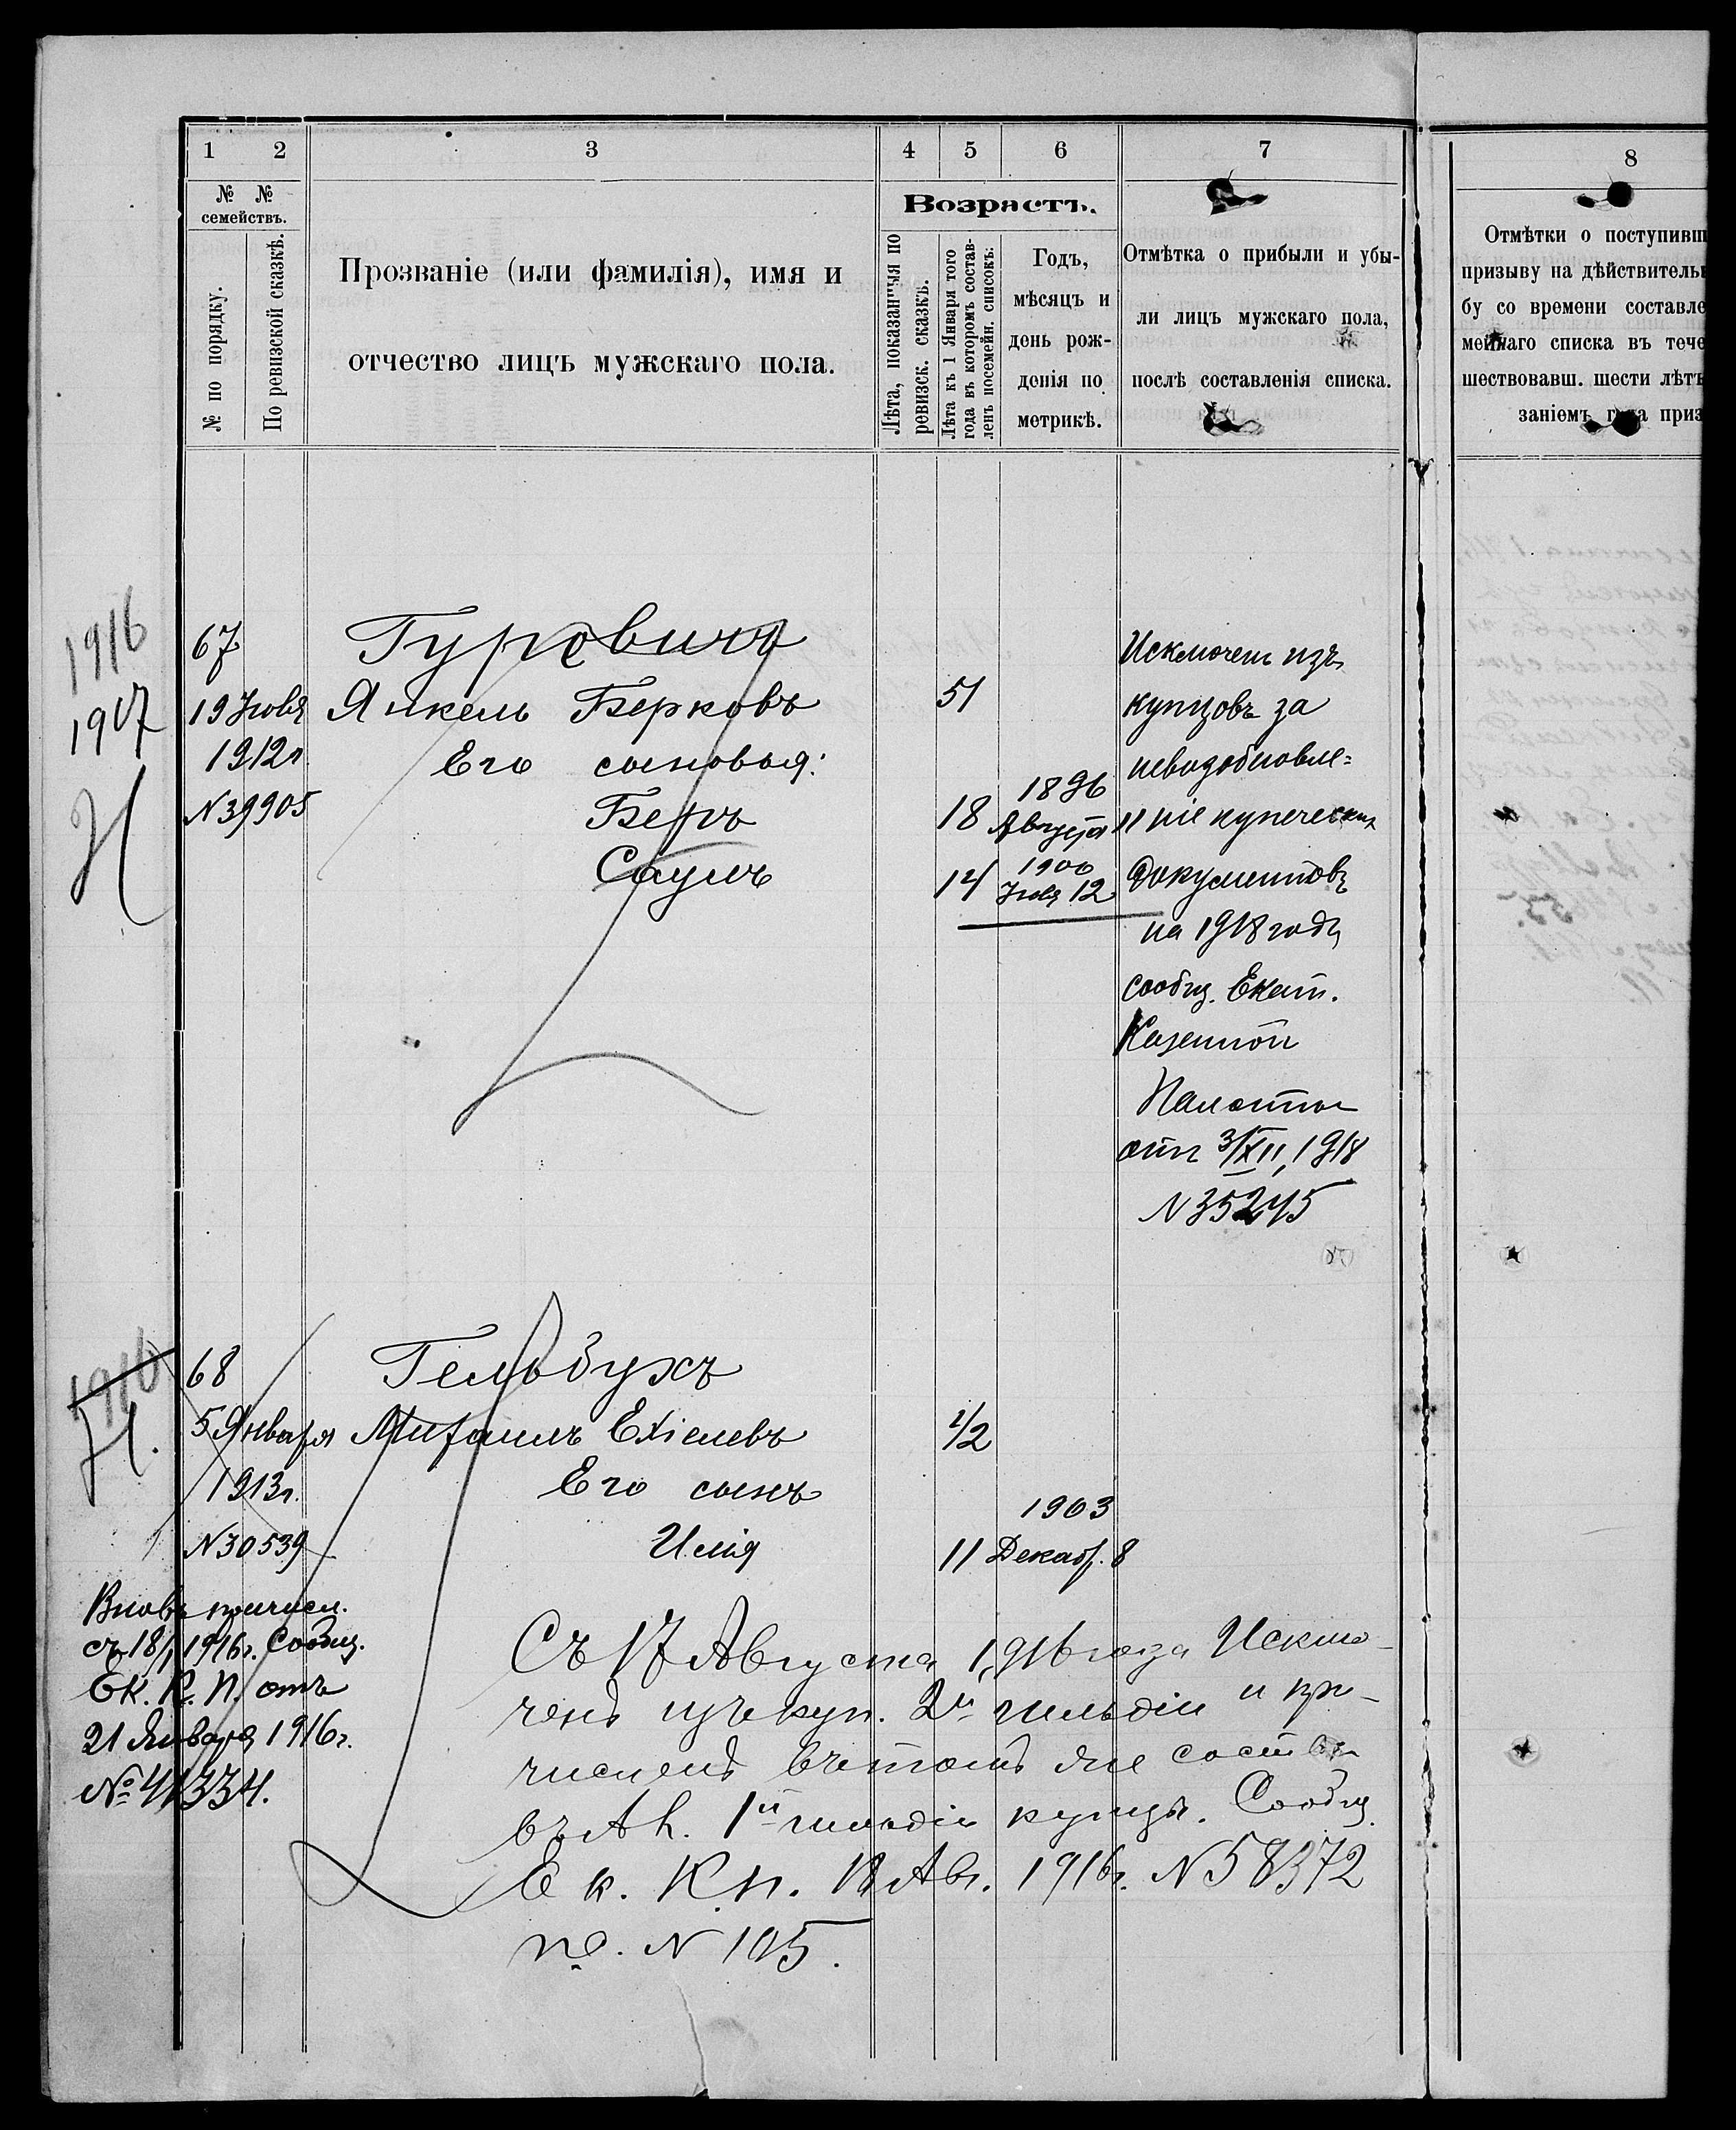 1 2 3 4 5 6 7
№ №
семействъ.
№ по порядку.
По ревизской сказкѣ.
Прозваніе (или фамилія), имя и
отчество лицъ мужскаго пола.
Возрастъ.
Лѣта, показанныя по
ревизск. сказкѣ.
Лѣта къ 1 Января того
года въ которомъ состав-
ленъ посемейн. списокъ.
Годъ,
мѣсяцъ и
день рож-
денія по
метрикѣ.
Отмѣтка о прибыли и убы-
ли лицъ мужскаго пола,
послѣ составленія списка.
8
Отмѣтки о поступивш
призыву на дѣйствительн
бу со времени составле
мейнаго списка въ тече
шествовавш. шести лѣтъ
заніемъ года приз
1916
1917
Н
67
19 Іюля
1912г.
N 39905
Гуровичъ
Янкель Берковъ 51
Его сыновья:
Беръ 18 1896 Августа 11
Саулъ 14 1900 Іюля 12
Исключенъ изъ
купцовъ за
невозобновле=
ніе купеческихъ
документовъ
на 1918 годъ
сообщ. Екат.
Казенной
Палаты
отъ 3/XII, 1918
N 35245
1916
Н.
68
5 Января
1913г.
N 30539
Гельбухъ
Михаилъ Ехіелевъ 42
Его сынъ
Илія 11 1903 Декабр. 8
Вновь причисл.
съ 18/I 1916г. Сообщ.
Ек. К. П. отъ
21 Января 1916г.
№ 41334.
Съ 17 Августа 1916 года Исклю-
ченъ изъ куп. 2й гильдіи и при-
численъ въ томъ же составѣ
въ Ал. 1й гильдіи купцы. Сообщ.
Ек. К. П. 18 Авг. 1916г. N 58372
по N 105.